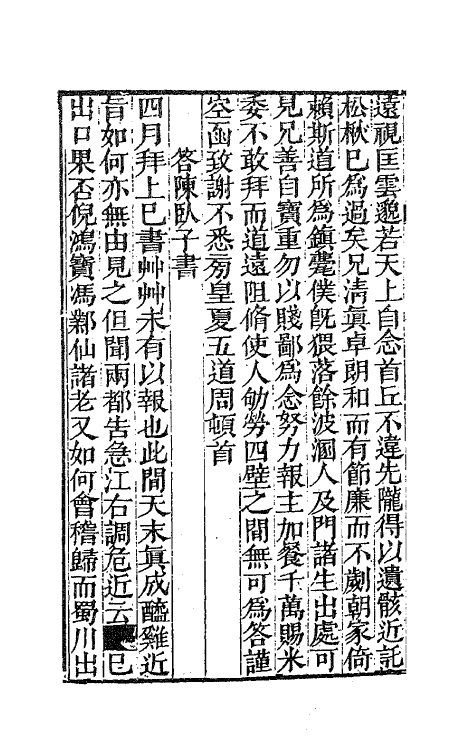 遠視匡雲邈若天上自念首丘不違先隴得以遺骸近託
松楸巳為過矣兄淸眞卓朗和而有節廉而不劌朝家倚
賴斯道所為鎮躄僕旣猥落餘波溷人及門諸生出處可
見兄善自寶重勿以賤鄙為念努力報主加餐千萬賜米
委不敢拜而道遠阻脩使人劬勞四壁之間無可為答謹
空函致謝不悉弱皇夏五道周頓首
答陳臥子書
四月拜上巳書艸艸未有以報也此間天末眞成醯雞近
旨如何亦無由見之但聞兩都告急江右調危近云巳
出口果否倪鴻寶馮鄴仙諸老又如何會稽歸而蜀川出